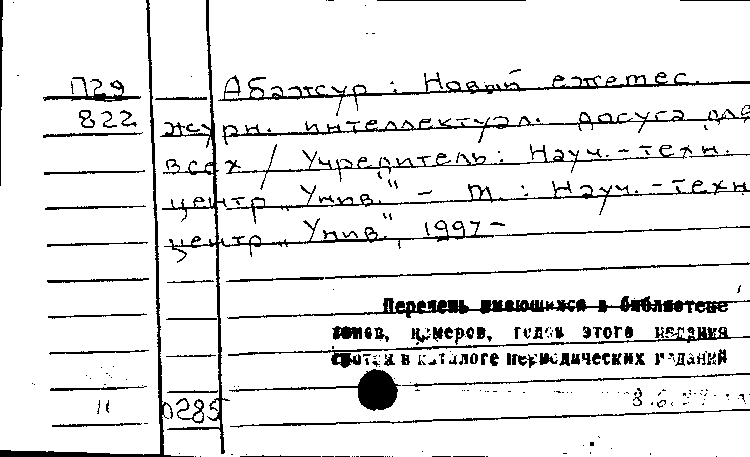 П29 Абажур : Новый ежемес.
822 журн. интеллектуал. досуга для
всех / Учредитель : Науч.-техн.
центр „Унив.“ – М. : Науч.-техн.
центр „Унив.“, 1997–
Перечень имеющихся в библиотеке
томов, номеров, годов этого издания
смотри в каталоге периодических изданий
11 0285